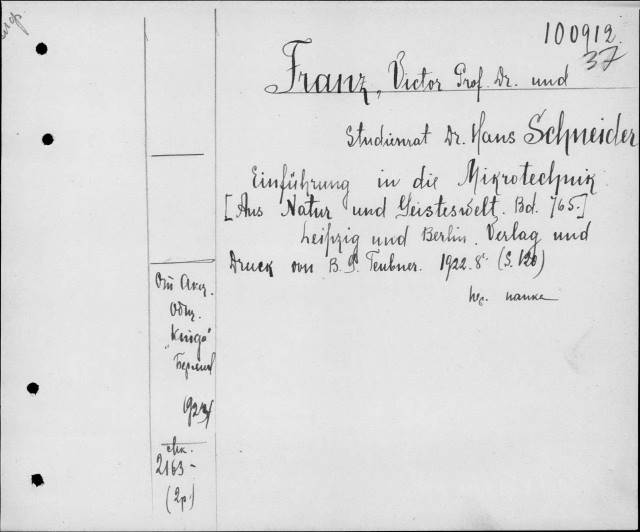 100912
37
Franz, Victor Prof. Dr. und
Studienrat Dr. Hans Schneider
Einführung in die Mikrotechnik
[Aus Natur und Geisteswelt. Bd. 765.]
Leipzig und Berlin. Verlag und
Druck von B. G. Teubner. 1922. 8° (S. 120)
От Акц.
Общ.
"Книга"
Берлин
192
2163 –
(2р.)